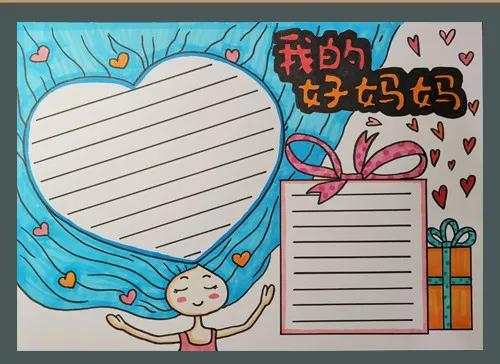 我的
好妈妈